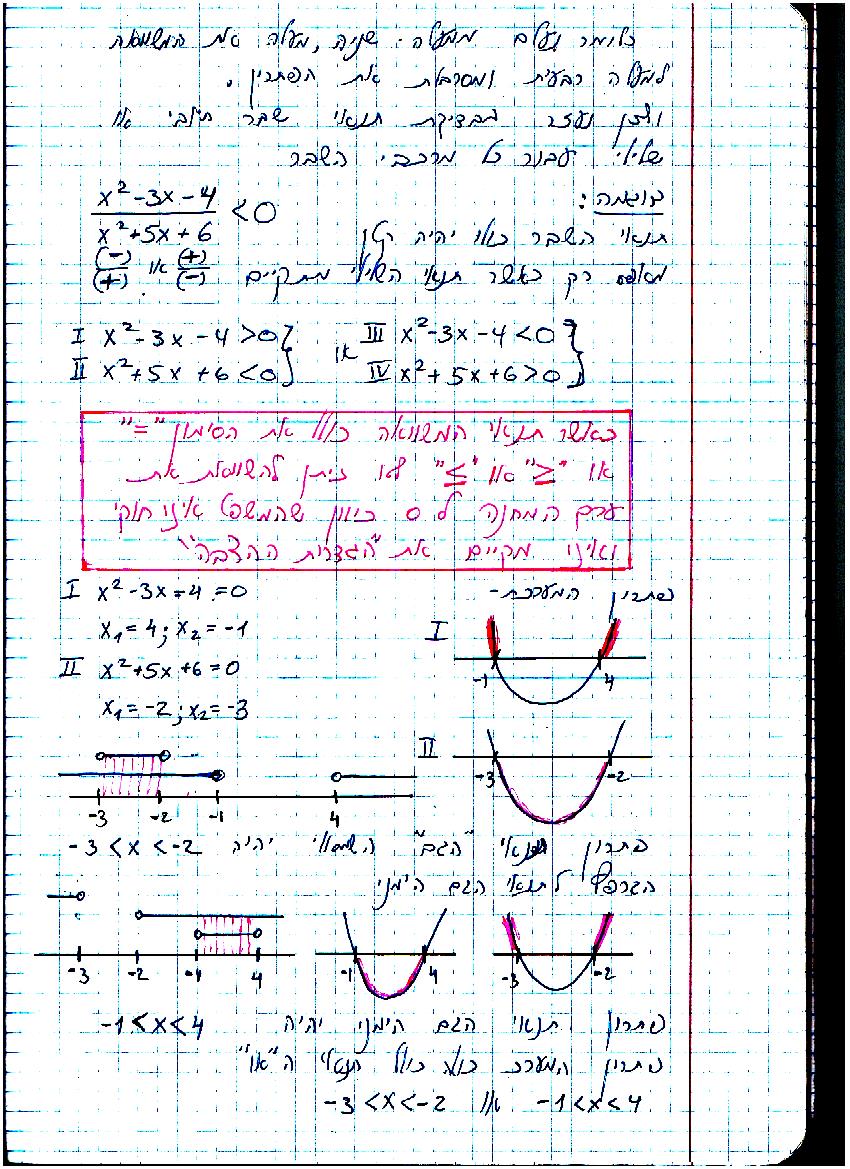 כלומר נעלם ממעלה שניה, מעלה את המשוואה
למעלה רבעית ומסרבלת את הפתרון.
ולכן נעזר בבדיקת תנאי שבר חיובי או
שלילי עבור כל מרכבי השבר
דוגמה:
x² - 3x - 4 / x² + 5x + 6 < 0
תנאי השבר כולו יהיה קטן
מאפס רק כאשר תנאי השלילי מתקיים (+)/(-) או (-)/(+)
I x² - 3x - 4 > 0 } או III x² - 3x - 4 < 0 }
II x² + 5x + 6 < 0 } IV x² + 5x + 6 > 0 }
כאשר תנאי המשוואה כולל את הסימון "="
או "≥" או "≤" לא ניתן להשוות את
ערך המחנה ל 0 כיוון שהמשפט אינו חוקי
ואינו מקיים את "הגדרות ההצבה"
I x² - 3x - 4 = 0
x₁ = 4 ; x₂ = -1
II x² + 5x + 6 = 0
x₁ = -2 ; x₂ = -3
פתרון המערכת-
I
-1 4
II
-3 -2
-3 -2 -1 4
פתרון תנאי "הגם" השמאלי יהיה -3 < x < -2
הגרפים לתנאי הגם הימני
-3 -2 -1 4
-1 4
-3 -2
פתרון תנאי הגם הימני יהיה -1 < x < 4
פתרון המערכת כולה כולל תנאי ה"או"
-3 < x < -2 או -1 < x < 4